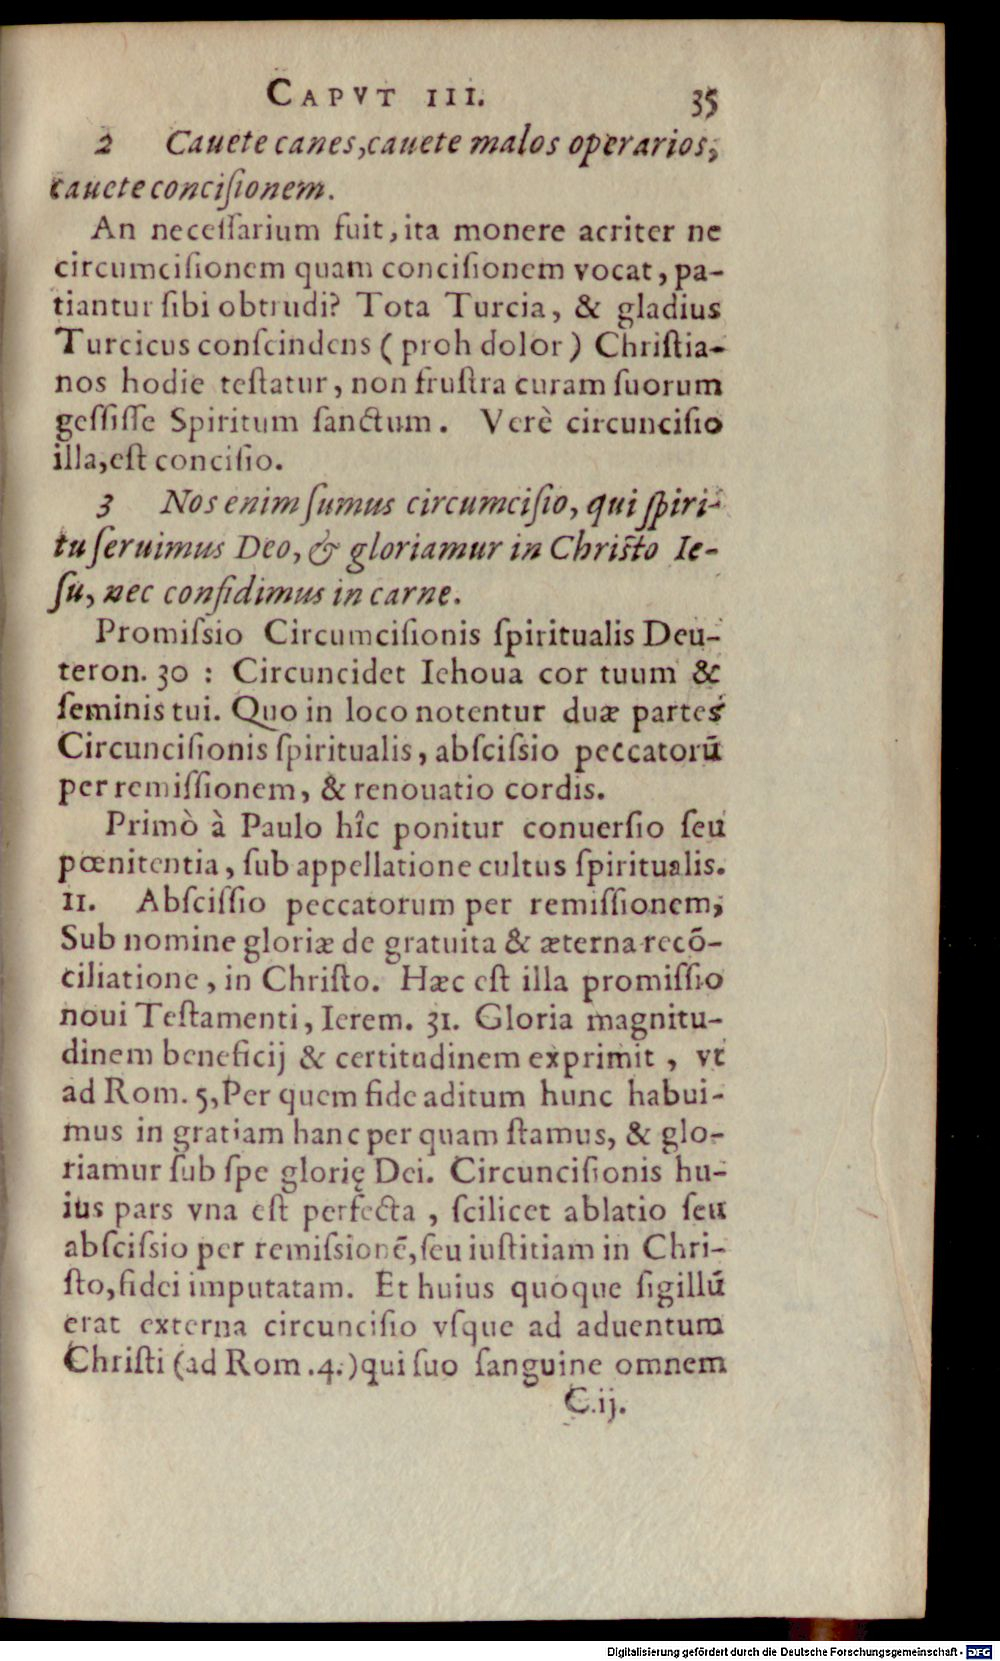 CAPVT III. 35
2 Cauete canes, cauete malos operarios,
cauete conciſionem.
An neceſſarium fuit, ita monere acriter ne
circumciſionem quam conciſionem vocat, pa-
tiantur ſibi obtrudi? Tota Turcia, & gladius
Turcicus conſcindens (proh dolor) Chriſtia-
nos hodie teſtatur, non fruſtra curam ſuorum
geſſiſſe Spiritum ſanctum. Verè circunciſio
illa, eſt conciſio.
3 Nos enim ſumus circumciſio, qui ſpiri-
tu ſeruimus Deo, & gloriamur in Chriſto Ie-
ſu, nec confidimus in carne.
Promiſsio Circumciſionis ſpiritualis Deu-
teron. 30 : Circuncidet Iehoua cor tuum &
ſeminis tui. Quo in loco notentur duæ partes
Circunciſionis ſpiritualis, abſciſsio peccatorū
per remiſsionem, & renouatio cordis.
Primò à Paulo hîc ponitur conuerſio ſeu
pœnitentia, ſub appellatione cultus ſpiritualis.
II. Abſciſsio peccatorum per remiſsionem,
Sub nomine gloriæ de gratuita & æterna recō-
ciliatione, in Chriſto. Hæc eſt illa promiſsio
noui Teſtamenti, Ierem. 31. Gloria magnitu-
dinem beneficij & certitudinem exprimit, vt
ad Rom. 5, Per quem fide aditum hunc habui-
mus in gratiam hanc per quam ſtamus, & glo-
riamur ſub ſpe glorię Dei. Circunciſionis hu-
ius pars vna eſt perfecta, ſcilicet ablatio ſeu
abſciſsio per remiſsionē, ſeu iuſtitiam in Chri-
ſto, fidei imputatam. Et huius quoque ſigillū
erat externa circunciſio vſque ad aduentum
Chriſti (ad Rom. 4.) qui ſuo ſanguine omnem
C.ij.
Digitalisierung gefördert durch die Deutsche Forschungsgemeinschaft - DFG